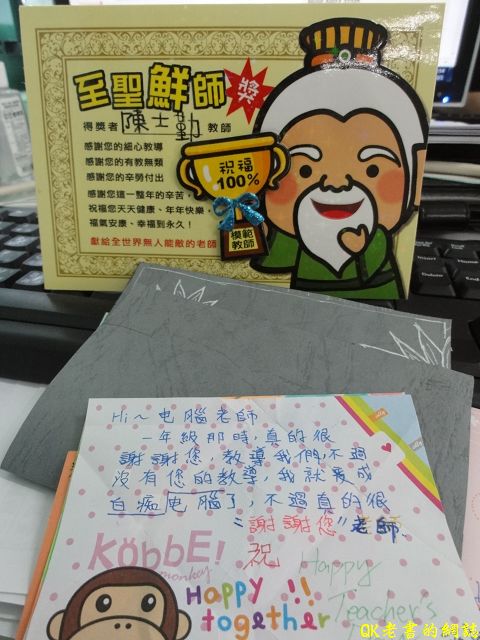 至聖鮮師獎
得獎者 陳士勤 教師
感謝您的細心教導
感謝您的有教無類
感謝您的辛勞付出
感謝您這一整年的辛苦，
祝福您天天健康、年年快樂，
福氣安康、幸福到永久！
獻給全世界無人能敵的老師
祝福
100%
模範
教師
Hi～电腦老師
一年級那時，真的很
謝謝您，教導我們，不過
沒有您的教導，我就变成
白痴电腦了，不過真的很
"謝謝您"老師.
祝 Happy
Teacher's
KöbbE!
monkey
Happy !!
together
QK老書的網誌